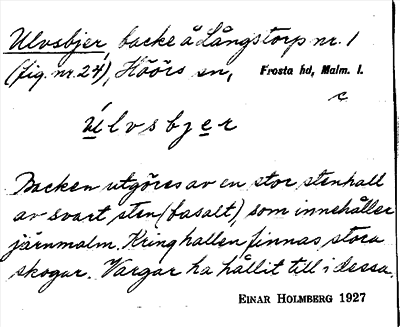 Ulvsbjer, backe å Långstorp nr. 1
(fig. nr. 24), Höörs sn, Frosta hd, Malm. l.
c
Úlvsbjer
Backen utgöres av en stor stenhall
av svart sten (basalt), som innehåller
järnmalm. Kring hallen finnas stora
skogar. Vargar ha hållit till i dessa.
EINAR HOLMBERG 1927